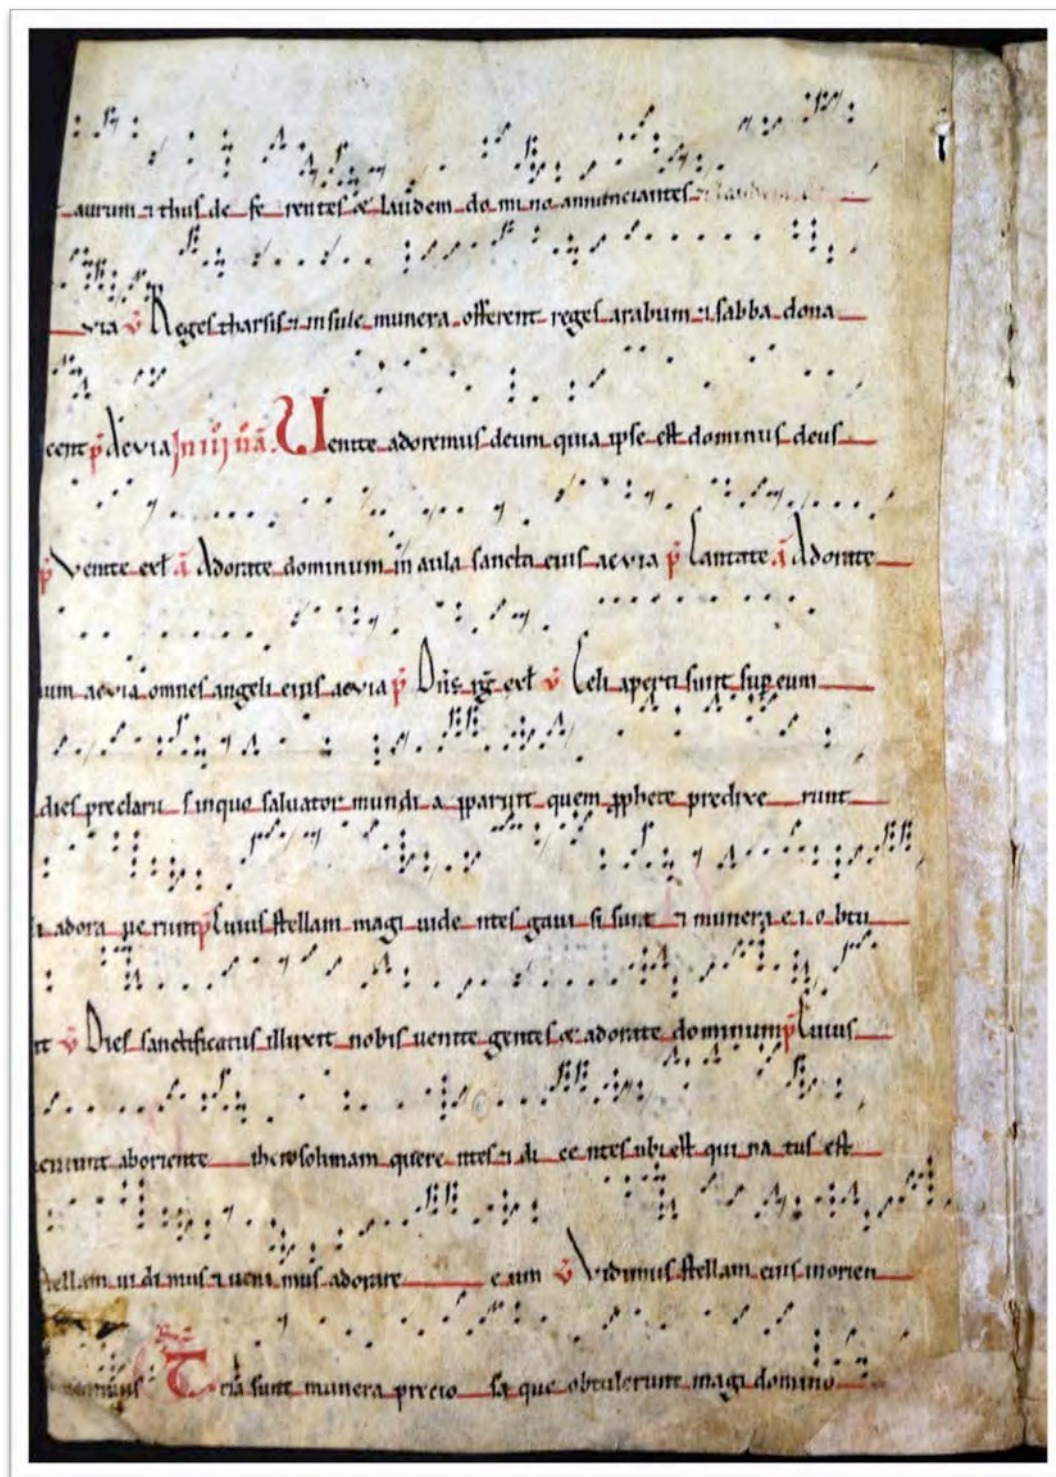 aurum ⁊ thus de fe rentes & laudem do mi no annunciantes ⁊
via ℣ Reges tharsis ⁊ insule munera offerent reges arabum ⁊ sabba dona
cent p̄ Aevia In iij nā. Uenite adoremus deum quia ipse est dominus deus
p̄ Venite exl ā Adorate dominum in aula sancta eius aevia p̄ Cantate ā Adorate
um aevia omnes angeli eius aevia p̄ Dn̄s rḡ exl ℣ Celi aperti sunt sup eum
dies preclaru s inquo saluator mundi a pparuit quem ꝓphete predixe runt
adora ue runt p̄ Cuius stellam magi uide ntes gaui si sunt ⁊ munera e i o btu
nt ℣ Dies sanctificatus illuxit nobis uenite gentes & adorate dominum p̄ Cuius
eniunt aboriente iherosolimam quere ntes ⁊ di ce ntes ubi est qui na tus est
stellam ui di mus ⁊ ueni mus adorare e um ℣ Vidimus stellam eius inorien
Tria sunt munera precio sa que obtulerunt magi domino